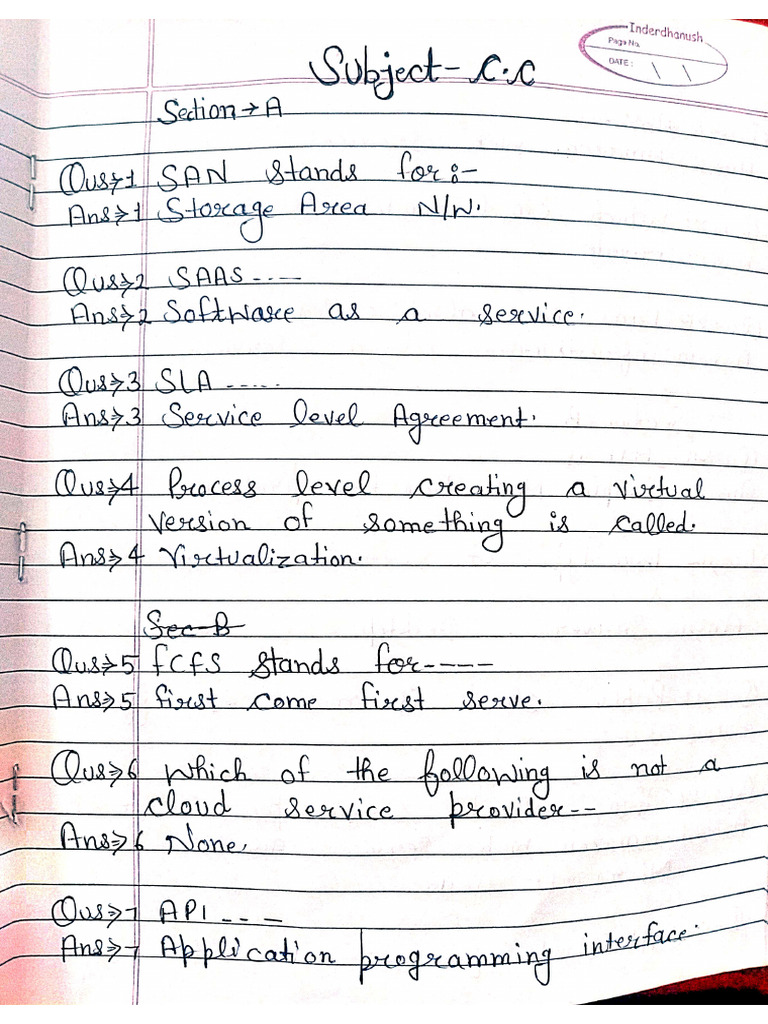 Inderdhanush
Page No.
DATE: \ \
Subject - C.C
Section → A
Qus⇒1 SAN stands for:-
Ans⇒1 Storage Area N/W.
Qus⇒2 SAAS ----
Ans⇒2 Software as a service.
Qus⇒3 SLA -----
Ans⇒3 Service level Agreement.
Qus⇒4 Process level creating a virtual
version of something is called.
Ans⇒4 Virtualization.
Sec-B
Qus⇒5 fCfS stands for----
Ans⇒5 first come first serve.
Qus⇒6 Which of the following is not a
cloud service provider--
Ans⇒6 None.
Qus⇒7 API ----
Ans⇒7 Application programming interface.